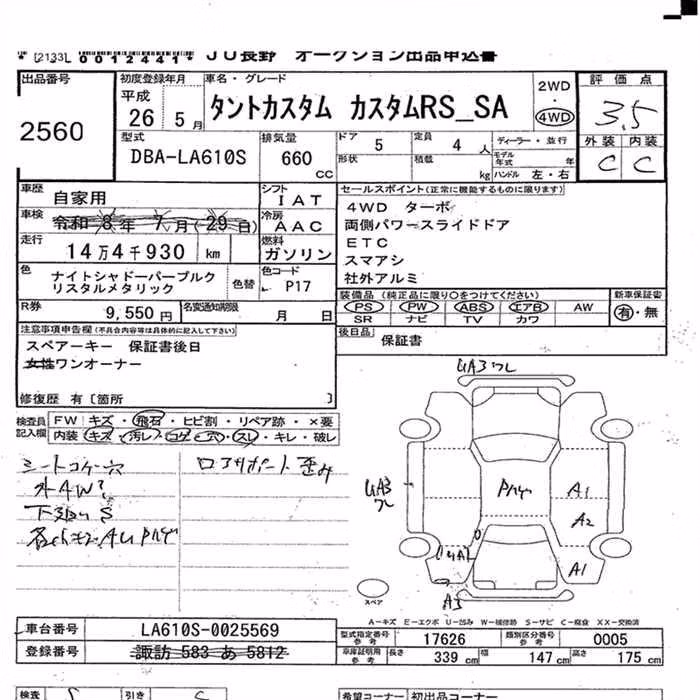 [2133L 0012441* JU長野 オークション出品申込書
出品番号
2560
初度登録年月
平成
26 5月
車名・グレード
タントカスタム カスタムRS_SA
2WD
・
4WD
評価点
3.5
外装 内装
C C
型式
DBA-LA610S
排気量
660
CC
ドア 5
形状
定員 4 人
積載 kg
ディーラー・並行
モデル年式 年
ハンドル 左・右
車歴 自家用
車検 令和 8年 7月(29日)
走行 14万4千930 km
色 ナイトシャドーパープルク
リスタルメタリック
色替
シフト
IAT
冷房
AAC
燃料
ガソリン
色コード
P17
セールスポイント(正常に機能するものに限ります)
4WD ターボ
両側パワースライドドア
ETC
スマアシ
社外アルミ
R券 9,550円
名変通知期限 月 日
装備品 (純正品に限り○をつけてください)
PS PW ABS エアB AW
SR ナビ TV カワ
新車保証書
有・無
後日品 保証書
注意事項申告欄(不具合内容等は具体的に記入して下さい)
スペアーキー 保証書後日
女性ワンオーナー
修復歴 有〔箇所 〕
検査員記入欄
FW キズ・飛石・ヒビ割・リペア跡・×要
内装 キズ・汚レ・コゲ・穴・スレ・キレ・破レ
シートコゲ穴
外AW
下廻りS
ロアサポート歪み
UA3 ワレ
UA3
ワレ
Pハゲ
A1
A2
A1
A3
スペア
A-キズ E-エクボ U-凹み W-補修跡 S-サビ C-腐食 XX-交換済
車台番号 LA610S-0025569
登録番号 諏訪 583 あ 5812
型式指定番号 参考 17626
類別区分番号 参考 0005
車庫証明用 参考 長さ 339 cm 幅 147 cm 高さ 175 cm
検査
引き
希望コーナー 初出品コーナー